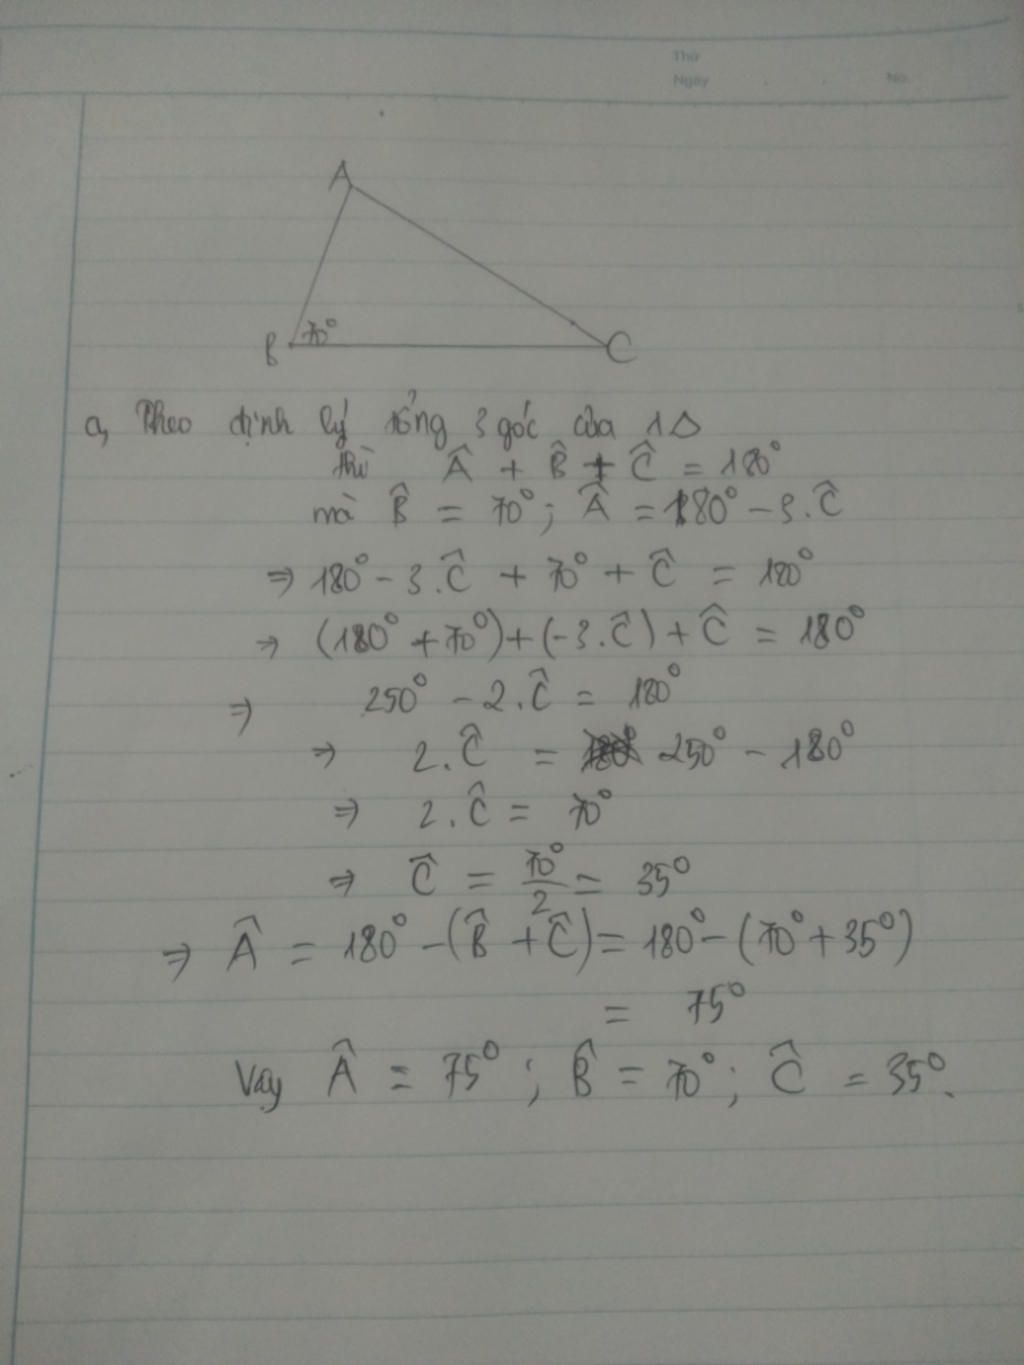 Thứ
Ngày No.
A
B 70° C
a, Theo định lý tổng 3 góc của 1Δ
thì Â + B̂ + Ĉ = 180°
mà B̂ = 70°; Â = 180° - 3.Ĉ
⇒ 180° - 3.Ĉ + 70° + Ĉ = 180°
⇒ (180° + 70°) + (-3.Ĉ) + Ĉ = 180°
⇒ 250° - 2.Ĉ = 180°
⇒ 2.Ĉ = 250° - 180°
⇒ 2.Ĉ = 70°
⇒ Ĉ = 70°/2 = 35°
⇒ Â = 180° - (B̂ + Ĉ) = 180° - (70° + 35°)
= 75°
Vậy Â = 75°; B̂ = 70°; Ĉ = 35°.